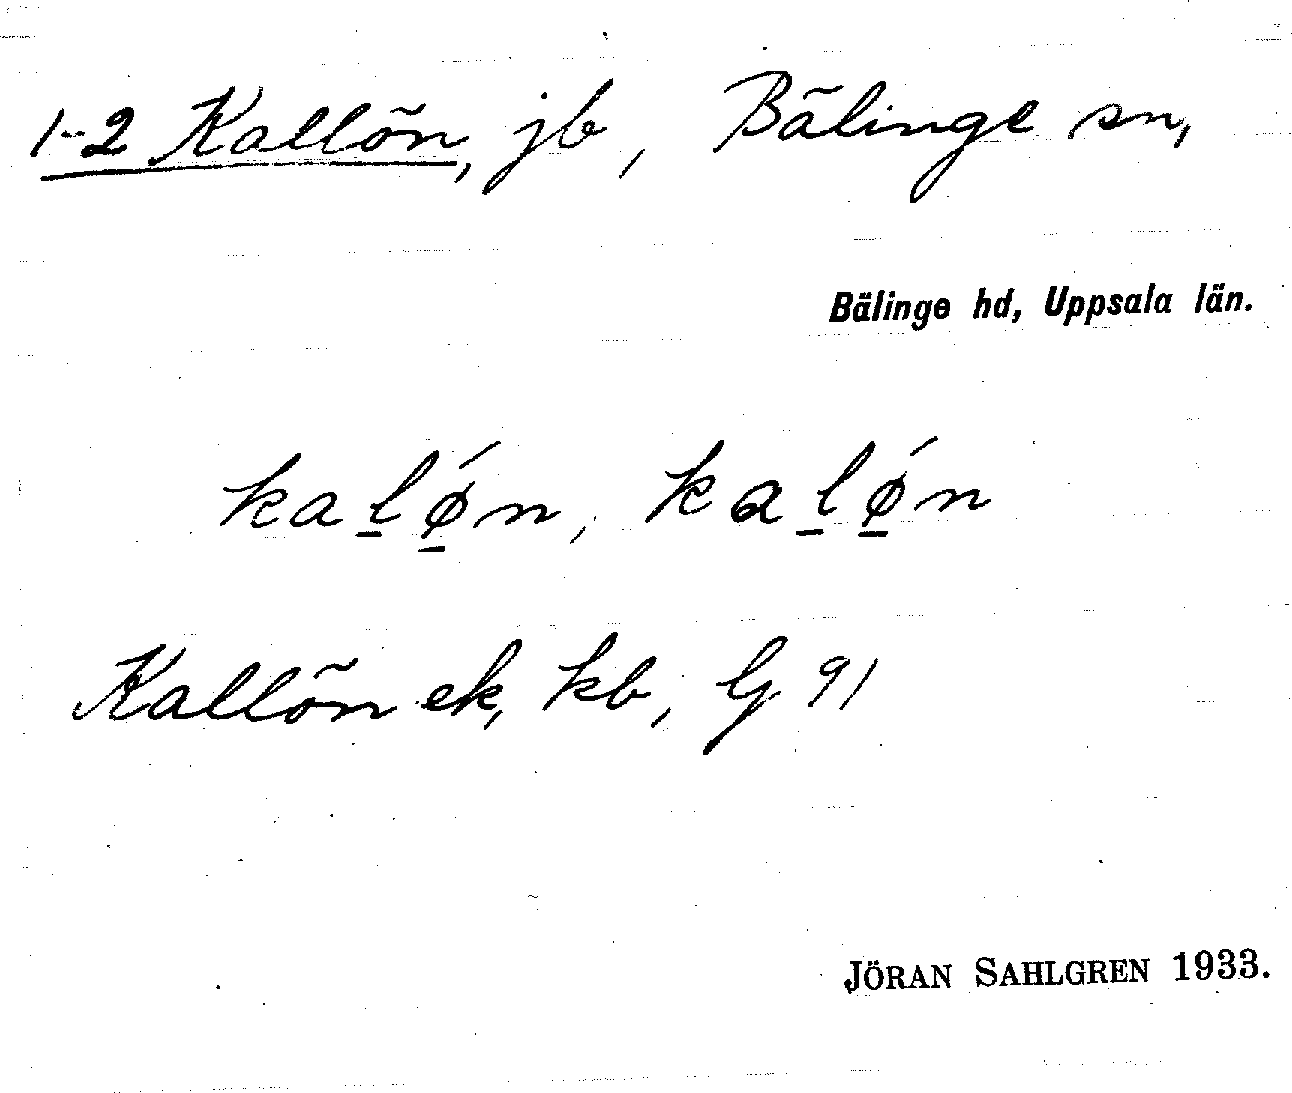 1-2 Kallön, jb, Bälinge sn,
Bälinge hd, Uppsala län.
kal̠ǿ̠n, kal̠ǿ̠n
Kallön ek, kb, G 91
JÖRAN SAHLGREN 1933.